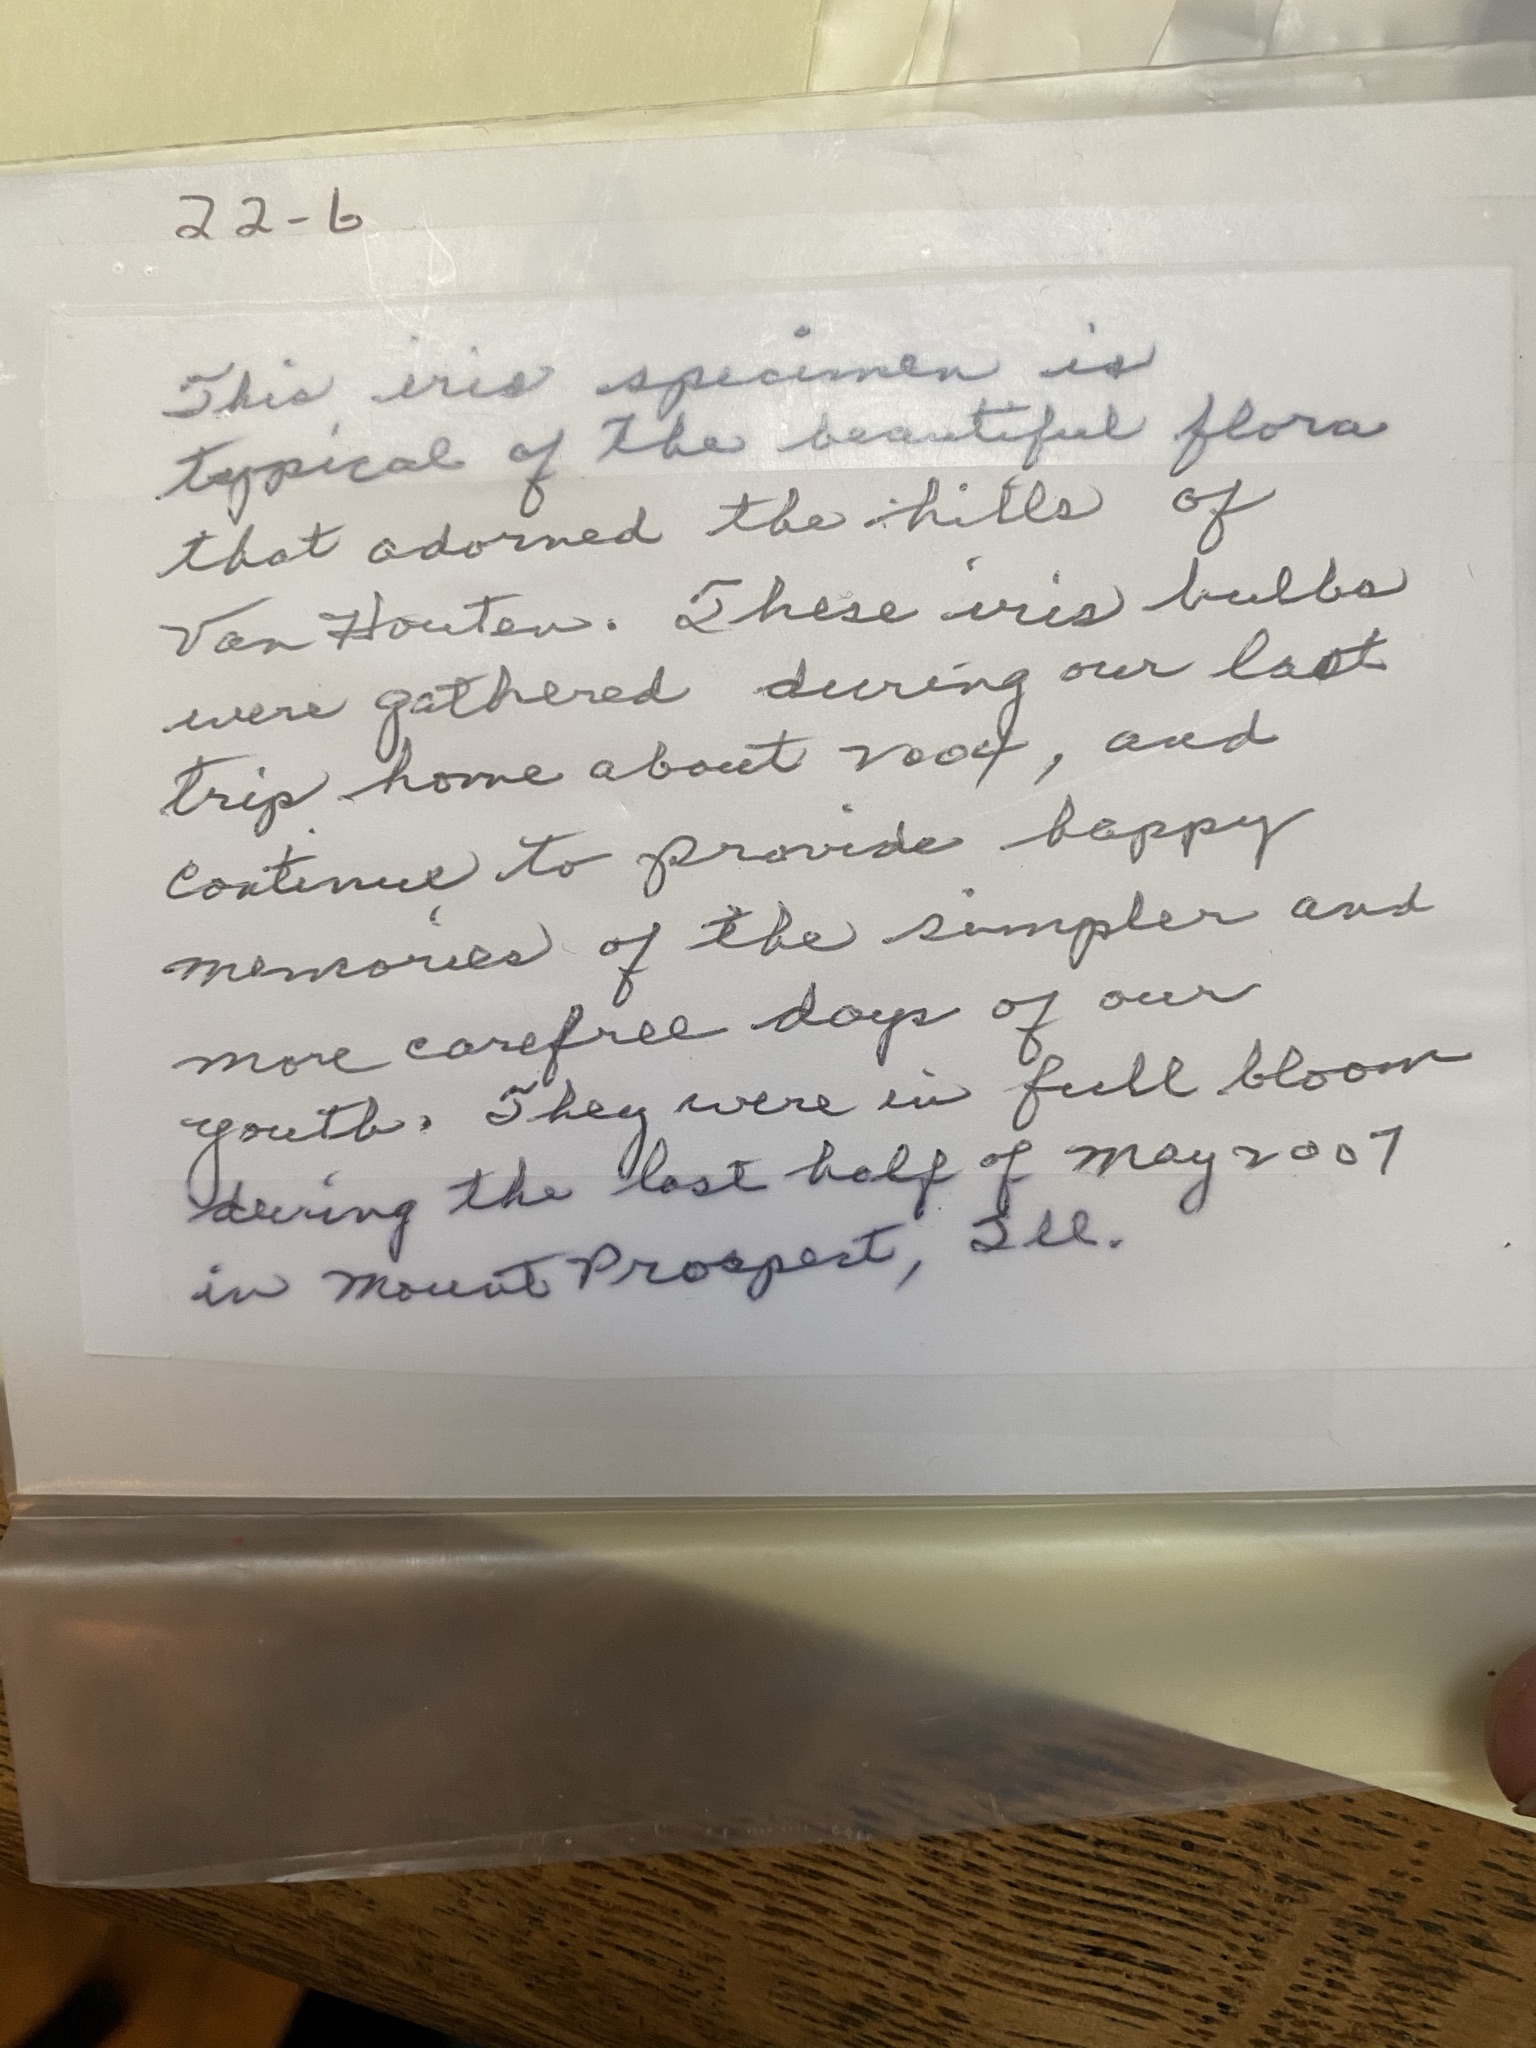 22-6
This iris specimen is
typical of the beautiful flora
that adorned the hills of
Van Houten. These iris bulbs
were gathered during our last
trip home about 2004, and
continue to provide happy
memories of the simpler and
more carefree days of our
youth. They were in full bloom
during the last half of May 2007
in Mount Prospect, Ill.